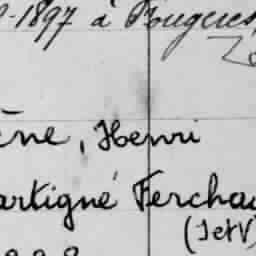 -1897 à Fougères
ène, Henri
artigné Ferchau
(Iet V)